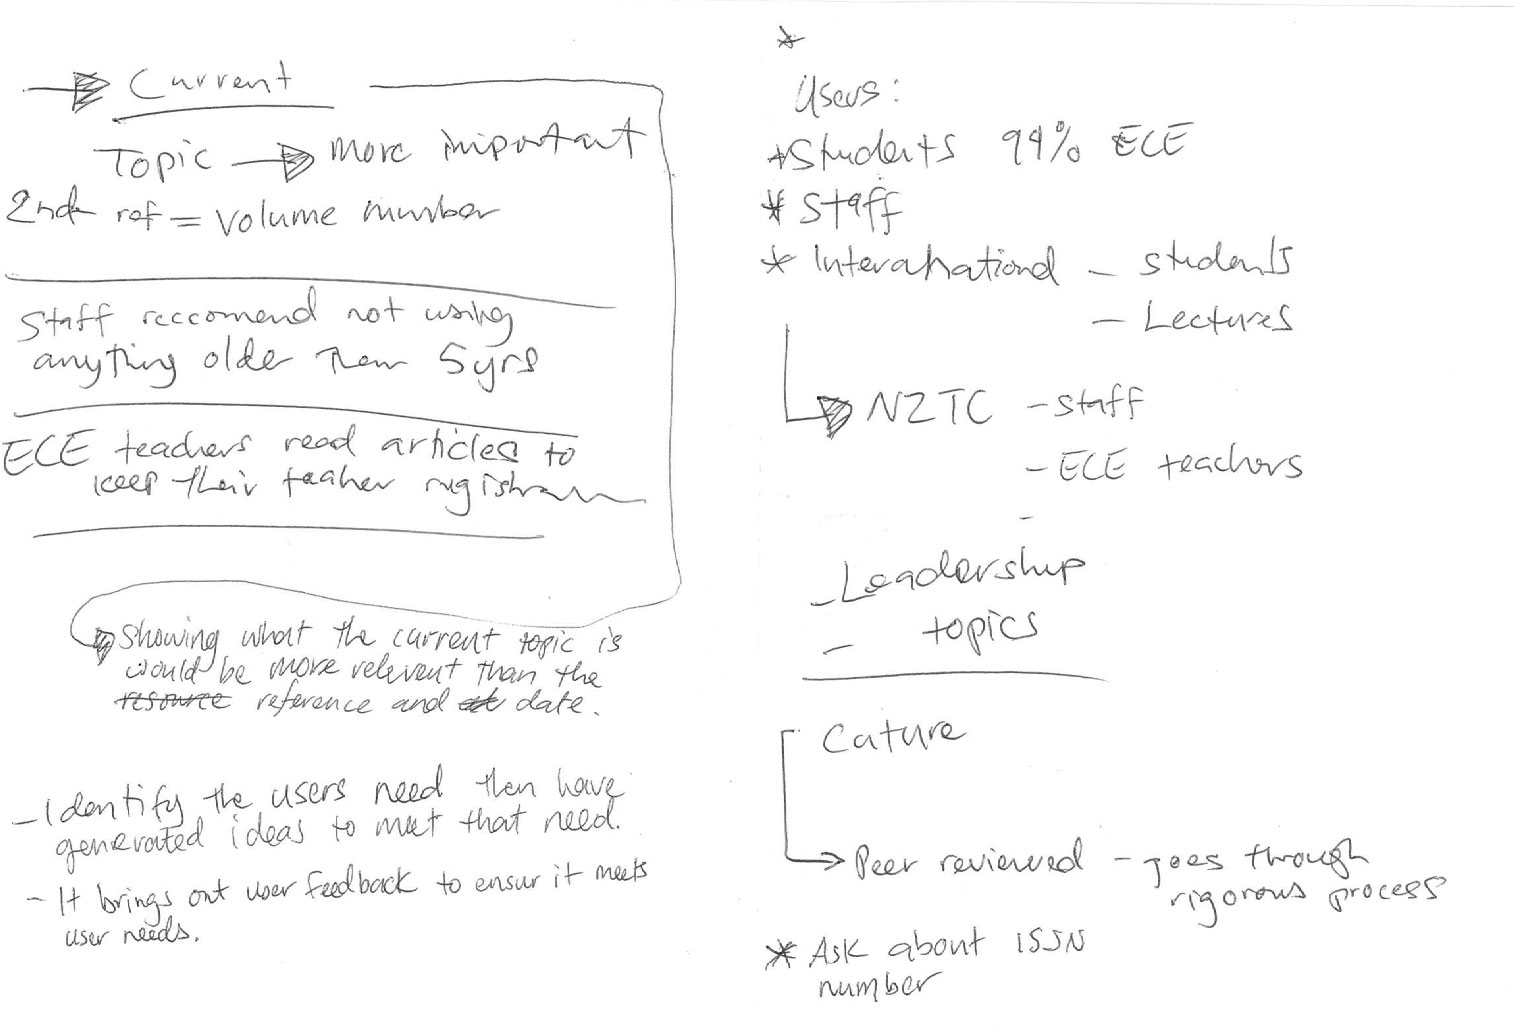 Current
Topic → more important
2nd ref = volume number
Staff reccomend not using
anything older than 5yrs
ECE teachers read articles to
keep their teaher
Showing what the current topic is
would be more relevent than the
resource reference and date.
- Identify the users need then have
generated ideas to meet that need.
- It brings out user feedback to ensur it meets
user needs.
*
Users:
* Students 99% ECE
* Staff
* - students
- Lectures
NZTC - staff
- ECE teachers
-
- Leadership
- topics
Cature
Peer reviewed - goes through
rigorous process
* Ask about ISSN
number